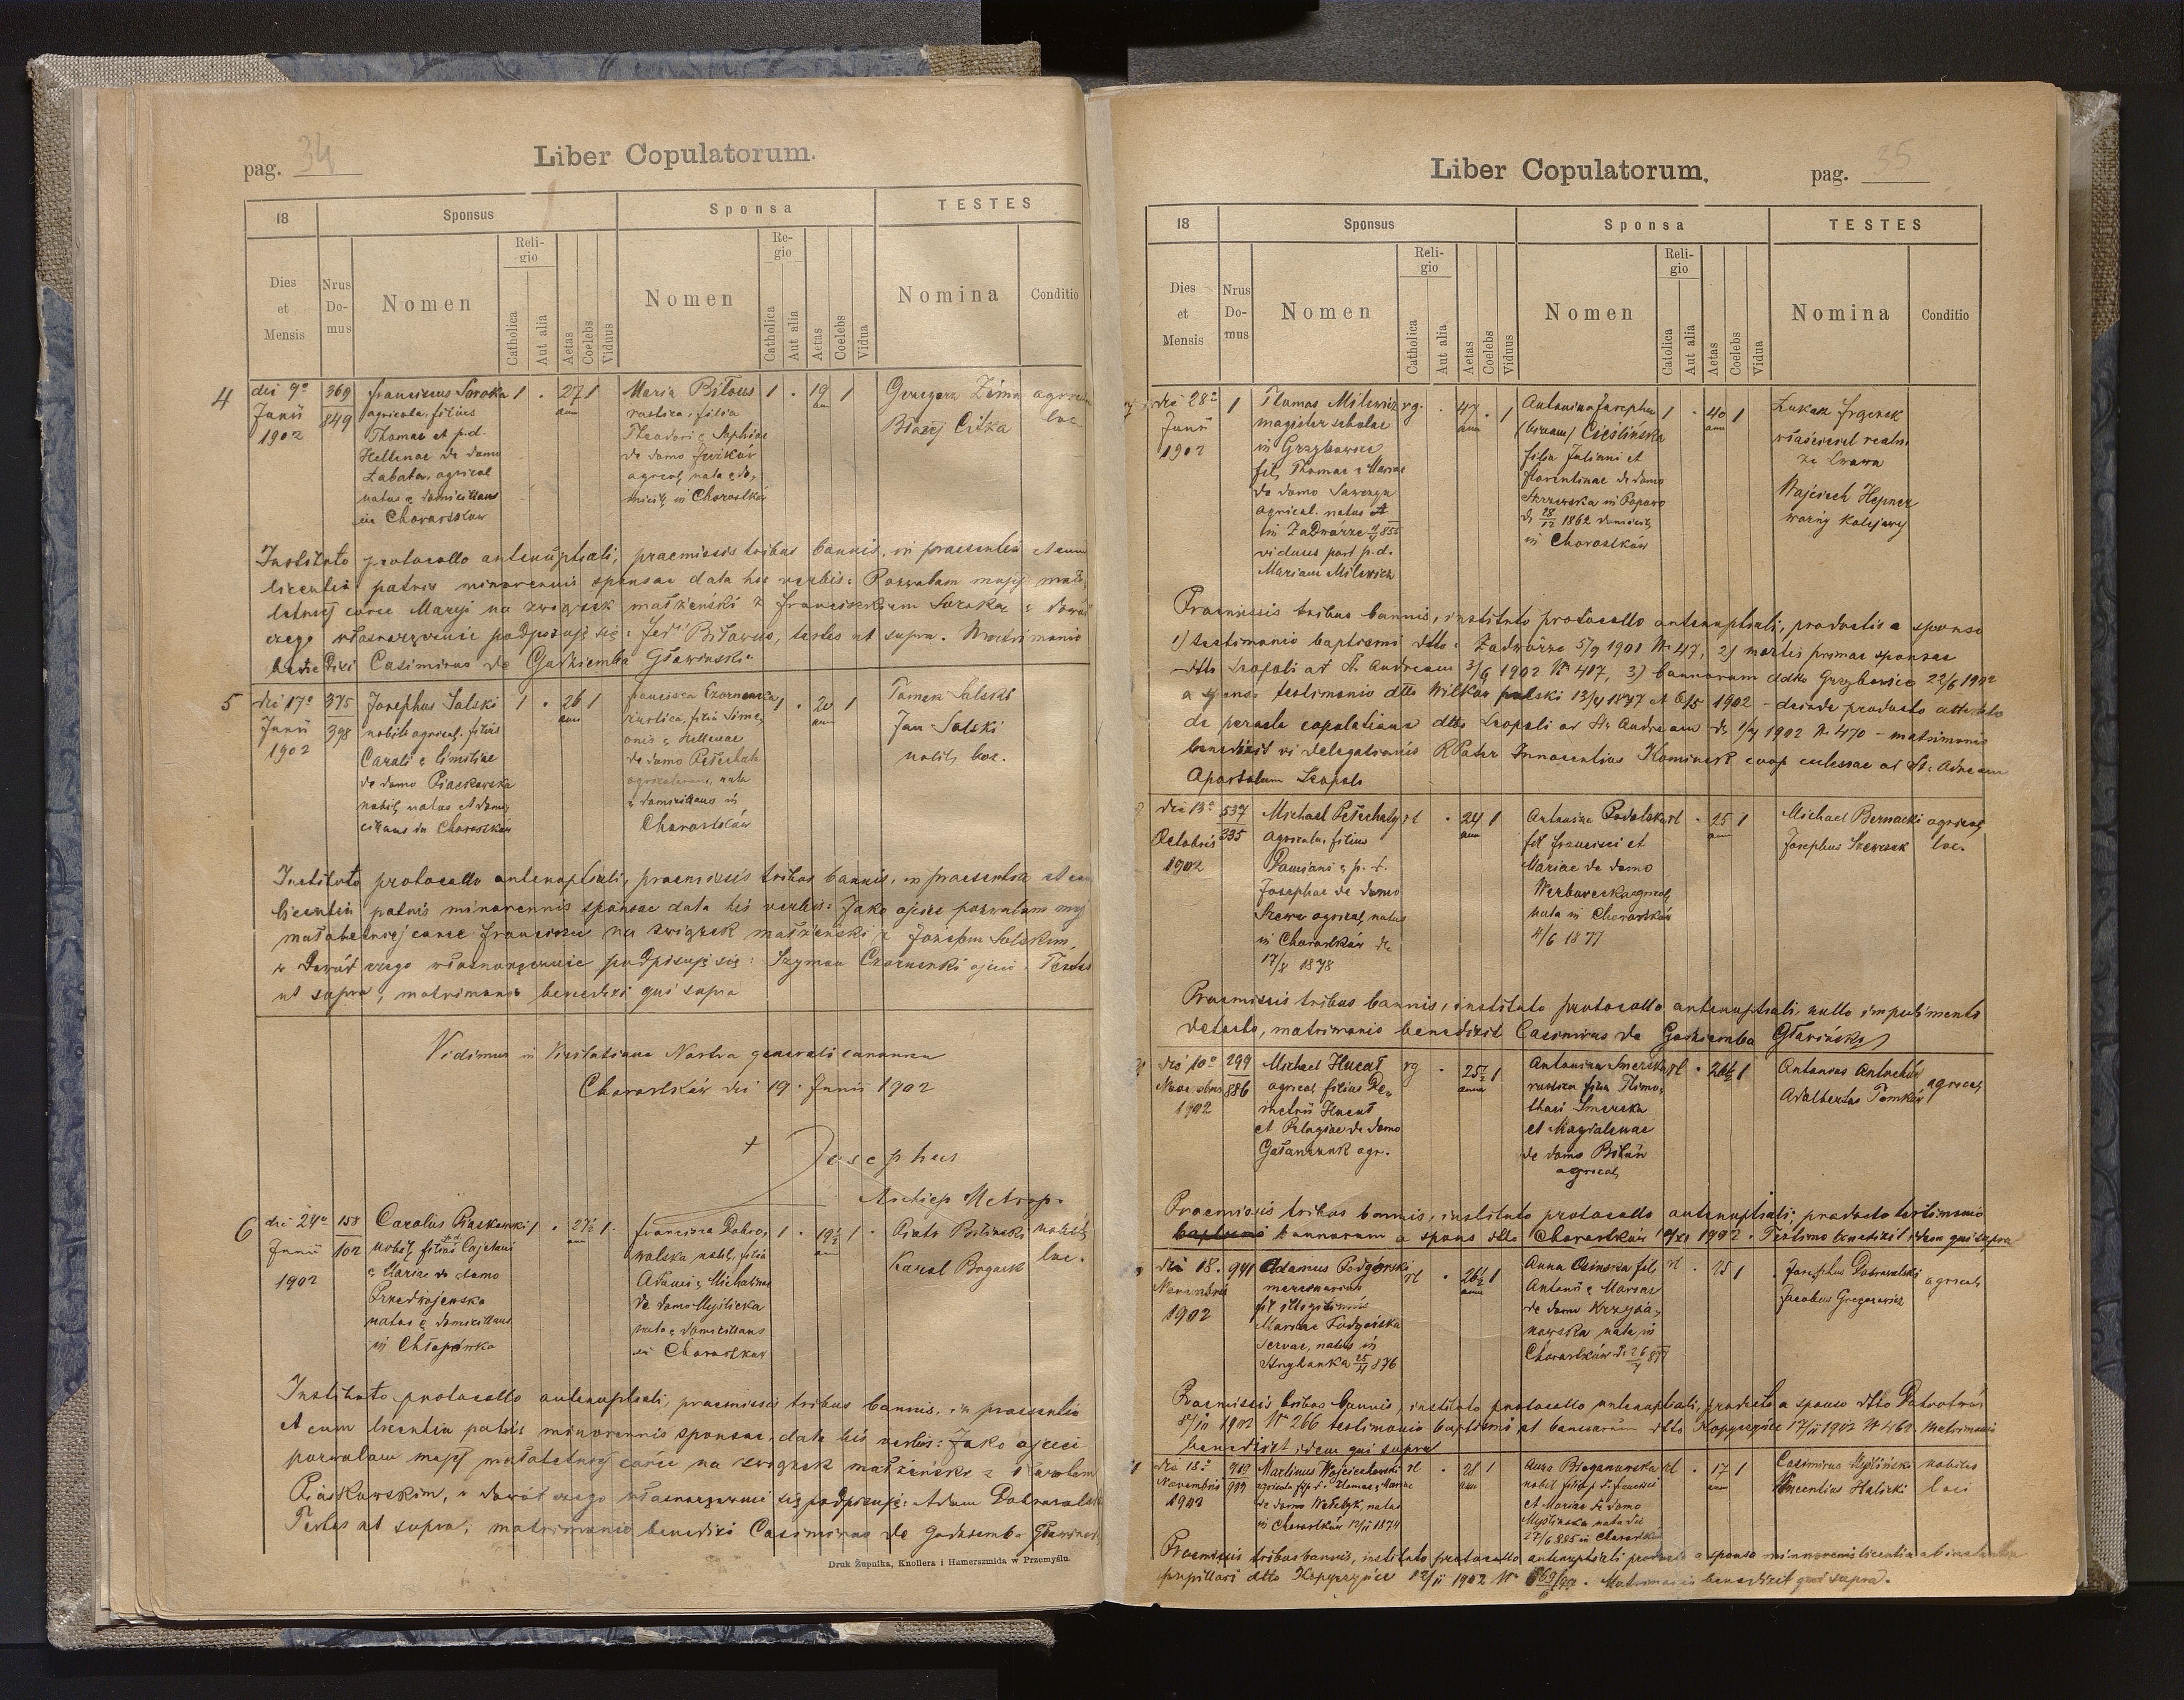 pag. 34
Liber Copulatorum.
18
Sponsus
Sponsa
TESTES
Dies et Mensis
Nrus Domus
Nomen
Religio
Catholica
Aut alia
Aetas
Coelebs
Viduus
Nomen
Religio
Catholica
Aut alia
Aetas
Coelebs
Vidua
Nomina
Conditio
4
die 9a
Junii
1902
369
849
Franciscus Soroka
agricola, filius
Thomae et p.d.
Hellenae de domo
Łabata, agricol
natus & domicilians
in Chorostków
1 . 27 1
ann
Maria Biłous
rustica, filia
Theodori & Sophiae
de domo
agricol, nata & do,
micil, in Chorostków
1 . 19 1
ann
Grzegorz Zima
Błażej Citka
agricol
loc.
Instituto protocollo antenuptiali, praemissis tribus bannis, in praesentia et cum
licentia patris minorennis sponsae data his verbis: Pozwalam mojej mało,
letniej córce Maryi na związek małżeński z Franciszkiem Soroka w dowód
czego własnoręcznie podpisuję się: Fed' Biławus, testes ut supra. Matrimonio
benedixi Casimirus de Gozdziemba Gławiński.
5
die 17a
Junii
1902
375
398
Josephus Salski
nobil. agricol. filius
Caroli & Emiliae
de domo Piaskowska
nobil, natus et domi,
cilians in Chorostków
1 . 26 1
ann
Francisca Czornenka
rustica, filia Sime,
onis & Hellenae
de domo Pełechata
agricolarum, nata
& domicilians in
Chorostków
1 . 20 1
ann
Tomek Salski
Jan Salski
nobil, loc.
Instituto protocollo antenuptiali, praemissis tribus bannis, in praesentia et cum
licentia patris minorennis sponsae data his verbis: Jako ojciec pozwalam moj
małoletniej corce Franciszce na związek małżeński z Józefem Salskim,
w Dowód czego własnoręcznie podpisuję się: Szymon Czornenki ojciec. Testes
ut supra, matrimonio benedixi qui supra
Vidimus in Visitatione Nostra generali canonica
Chorostków die 19. Junii 1902
+ Josephus
Archiep Metrop.
6
die 24a
Junii
1902
158
102
Carolus Piaskowski
nobil, filius p.d. Cajetani
& Mariae de domo
Przedrzejewska
natus & domicilians
in Chłopówka
1 . 27½ 1
ann
Francisca Dobro,
walska nobil, filia
Adami & Michalinae
de domo Myślicka
nata & domicilians
in Chorostków
1 . 19½ 1
ann
Piotr Biliński
Karol Bogacki
nobil,
loc.
Instituto protocollo antenuptiali, praemissis tribus bannis, in praesentia
et cum licentia patris minorennis sponsae, data his verbis: Jako ojciec
pozwalam mojej małoletniej córce na związek małżeński z Karolem
Piaskowskim, w dowód czego własnoręcznie się podpisuję: Adam Dobrowolski
Testes ut supra; matrimonio benedixi Casimirus de Gozdziemba Gławiński
Druk Żupnika, Knollera i Hamerszmida w Przemyślu.
Liber Copulatorum.
pag. 35
18
Sponsus
Sponsa
TESTES
Dies et Mensis
Nrus Domus
Nomen
Religio
Catholica
Aut alia
Aetas
Coelebs
Viduus
Nomen
Religio
Catolica
Aut alia
Aetas
Coelebs
Vidua
Nomina
Conditio
7
die 28a
Junii
1902
1
Thomas Milewicz
magister scholae
in Grzybowice
fil, Thomae & Mariae
de domo Sawczyn
agricol. natus
in Zadwórze
viduus post p.d.
Mariam Milewicz
rg. . 47 . 1
ann
Antonina Josepha
(binom) Cieślińska
filia Juliani et
Florentinae de domo
Skrzewska in Popowo
d, 28/12 1862 domicil,
in Chorostków
1 . 40 1
ann
Łukasz
właściciel realn.
ze Lwowa
Wojciech Hepner
woźny kolejowy
Praemissis tribus bannis, instituto protocollo antenuptiali, productis a sponso
1) testimonio baptismi dtto Zadwórze 5/9 1901 N 47, 2) mortis primae sponsae
dtto Leopoli ad St. Andream 3/6 1902 N 417, 3) bannorum ddto Grzybowice 22/6 1902
a sponsa testimonio dtto Wilków polski 13/4 1877 et 6/5 1902 – deinde producto attestato
de peracta copulatione dtto Leopoli ad St. Andream d 1/7 1902 N. 470 – matrimonio
benedixit vi delegationis R Pater Innocentius Kominek coop ecclesiae ad St. Andream
Apostolum Leopoli
die 13a
Octobris
1902
537
335
Michael Pełechaty
agricola, filius
Damiani & p. d.
Josephae de domo
Szewc agricol, natus
in Chorostków die
17/8 1878
rl . 24 1
ann
Antonina Podolska
fil Francisci et
Mariae de domo
Werbowecka agricol,
nata in Chorostków
4/6 1877
rl . 25 1
ann
Michael Bernacki
Josephus Szewczuk
agricol,
loc.
Praemissis tribus bannis, instituto protocollo antenuptiali, nullo impedimento
detecto, matrimonio benedixit Casimirus de Gozdziemba Gławiński
die 10a
Novembris
1902
299
886
Michael Hucał
agricol, filius De,
metrii Hucał
et Pelagiae de domo
Gałanczuk agr.
rg . 25½ 1
ann
Antonina Smerska
rustica filia Thimo,
thaei Smerska
et Magdalenae
de domo Biłan
agricol,
rl . 26½ 1
Antonius Antochów
Adalbertus Tomków
agricol,
Praemissis tribus bannis, instituto protocollo antenuptiali; producto testimonio
baptismi bannorum a sponso dtto Chorostków 10/XI 1902. Testimo benedixit idem qui supra
die 18.
Novembris
1902
941
Adamus Podgórski
mercenarius
fil illegitimus
Mariae Podgórska
servae, natus in
Hrybanka 25/11 876
rl . 26½ 1
ann
Anna Osinska fil,
Antonii & Mariae
de domo Krzyża,
nowska nata in
Chorostków d. 26/7 877
rl . 25 1
Josephus Dobrowolski
Jacobus Gregorowicz
agricol,
Praemissis tribus bannis, instituto protocollo antenuptiali, producto a sponso dtto
8/11 1902 N 266 testimonio baptismi et bannorum dtto Kopyczyńce 17/11 1902 N 462. Matrimonio
benedixit idem qui supra
die 18a
Novembris
1902
Martinus Wojciechowski
agricola fil p. d. Thomae & Mariae
de domo Wałczyk, natus
in Chorostków 12/11 1874
rl . 28 1
ann
Anna Bieganowska
nobil filia p. d. Francisci
et Mariae de domo
Myślinska nata die
27/6 885 in Chorostków
rl . 17 1
ann
Casimirus Myśliński
Vincentius Halicki
nobiles
loci
Praemissis tribus bannis, instituto protocollo antenuptiali producta a sponsa minorenni licentia ab instantia
pupillari dtto Kopyczyńce 12/11 1902 N. Matrimonio benedixit qui supra.